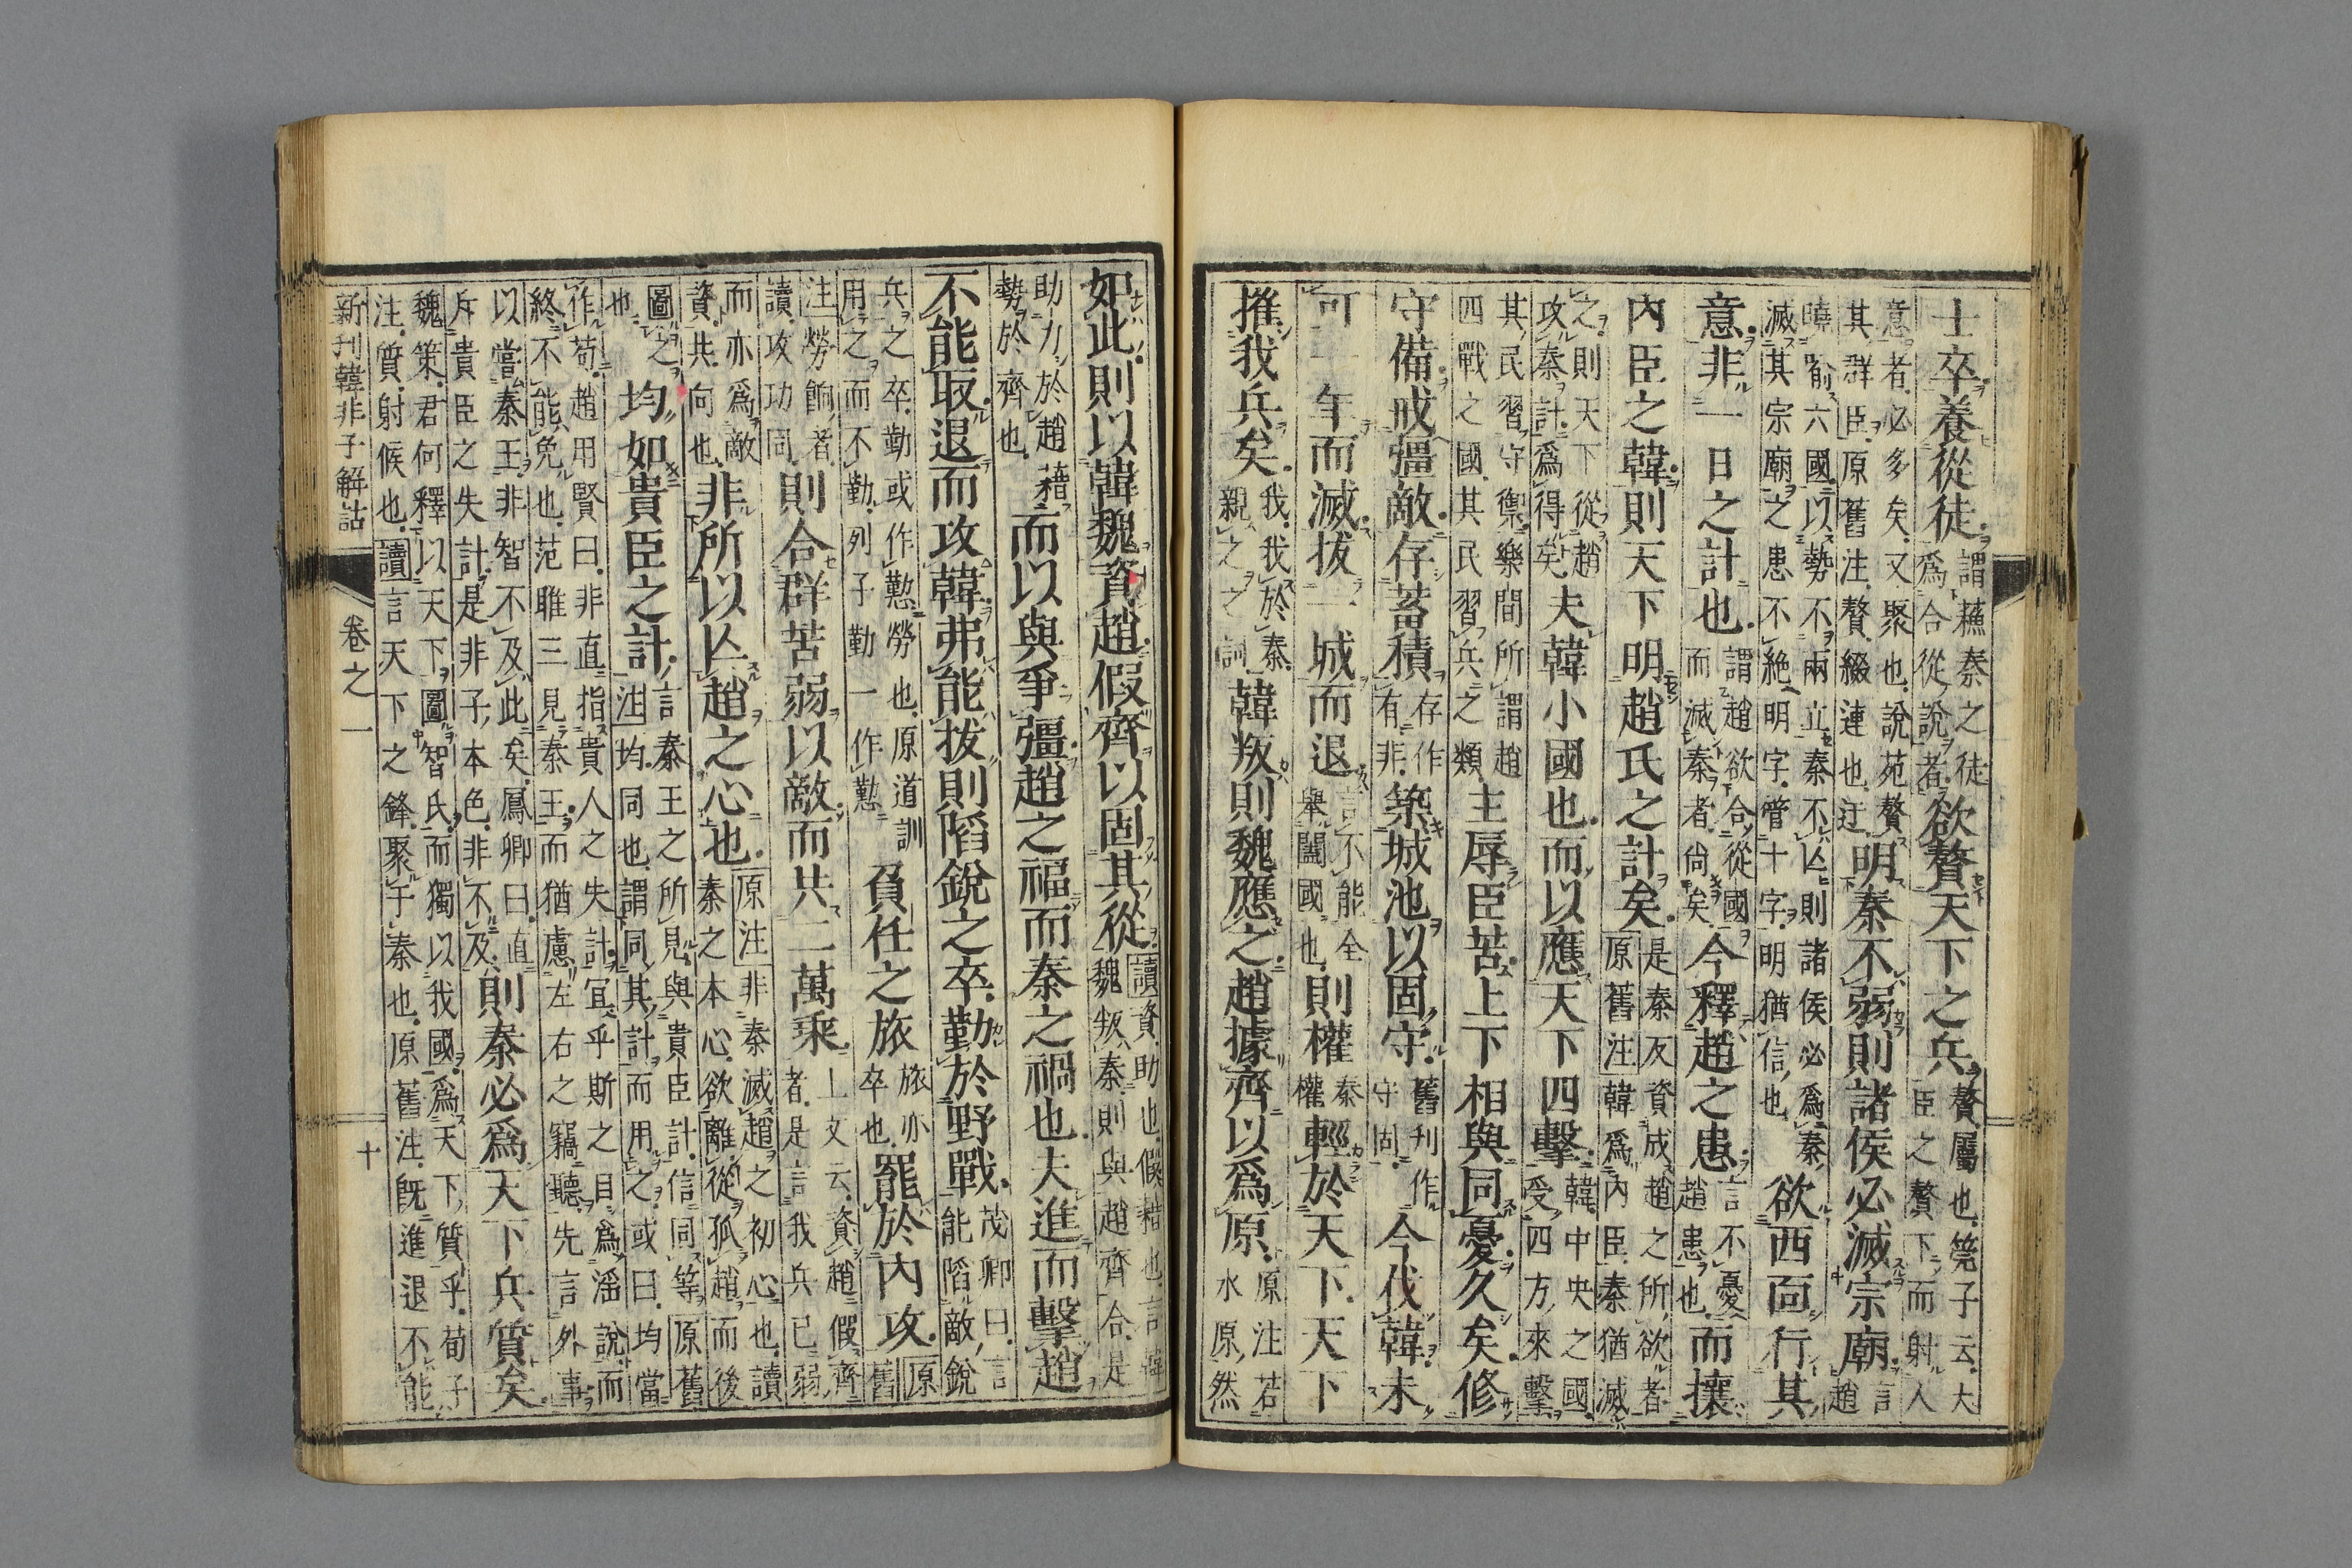 士卒養從徒謂蘓秦之徒爲合從説者欲贅天下之兵贅屬也筦子云大臣之贅下而射人
意者必多矣又聚也説苑贅其群臣原舊注贅綴連也迋明秦不弱則諸侯必滅宗廟言趙
曉諭六國以勢不兩立秦不亾則諸侯必爲秦滅其宗廟之患不絶明字管十字明猶信也欲西面行其
意非一日之計也謂趙欲合從國而滅秦者尙矣今釋趙之患言不憂趙患也而攘
內臣之韓則天下明趙氏之計矣是秦反資成趙之所欲者原舊注韓爲內臣秦猶滅
之則天下從趙攻秦計爲得矣夫韓小國也而以應天下四擊韓中央之國受四方來擊
其民習守禦樂間所謂趙四戰之國其民習兵之類主辱臣苦上下相與同憂久矣修
守備戒彊敵存蓄積存作有非築城池以固守舊刋作守固今伐韓未
可一年而滅拔一城而退言不能全舉闔國也則權秦權輕於天下天下
摧我兵矣我我於秦親之之詞韓叛則魏應之趙據齊以爲原原注若水原然
如此則以韓魏資趙假齊以固其從讀資助也假藉也言韓魏叛秦則與趙齊合是
助力於趙藉勢於齊也而以與爭彊趙之福而秦之禍也夫進而擊趙
不能取退而攻韓弗能拔則陷銳之卒勤於野戰茂卿曰言能陷敵銳
兵之卒勤或作懃勞也原道訓用之而不勤列子勤一作懃負任之旅旅亦卒也罷於內攻原舊
注勞餉者讀攻功同則合群苦弱以敵而共二萬乘上文云資趙假齊者是言我兵已弱
而亦爲敵資共向也非所以亾趙之心也原注非秦滅趙之初心也讀秦之本心欲離從孤趙而後
圖之也均如貴臣之計言秦王之所見與貴臣計信同等原舊注均同也謂同其計而用之或曰均當
作苟趙用賢曰非直指貴人之失計冝乎斯之目爲滛說而終不能免也范雎三見秦王而猶慮左右之竊聽先言外事
以嘗秦王非智不及此矣鳳卿曰直斥貴臣之失計是非子本色非不及則秦必爲天下兵質矣
魏策君何釋以天下圖智氏而獨以我國爲天下質乎荀子注質射候也讀言天下之鋒聚于秦也原舊注既進退不能
新刊韓非子解詁 卷之一 十